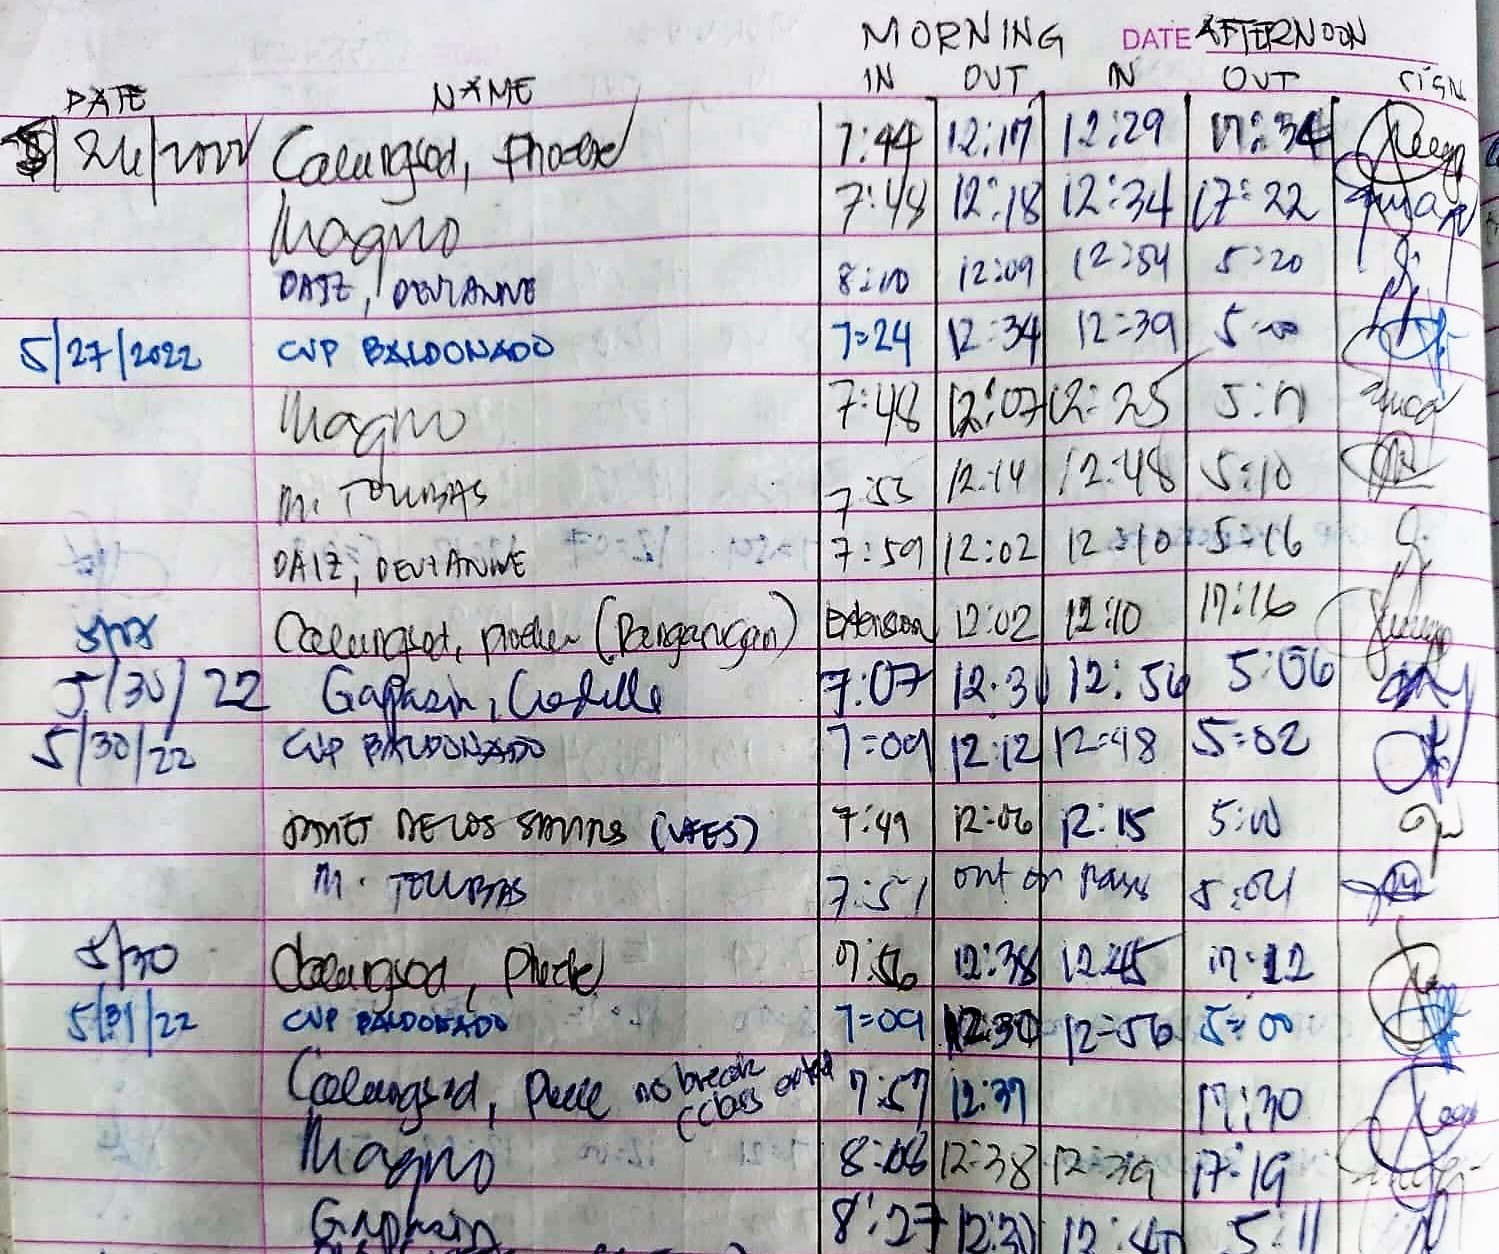 MORNING DATE AFTERNOON
DATE NAME IN OUT IN OUT SIGN
5/26/2022 Calungsod, Phoebe 7:44 12:17 12:29 17:34
Magno 7:48 12:18 12:34 17:22
DAIZ, DEVIANNE 8:10 12:09 12:54 5:20
5/27/2022 CVP BALDONADO 7:24 12:34 12:39 5:00
Magno 7:48 12:07 12:25 5:11
M. TOLIBAS 7:53 12:14 12:48 5:10
DAIZ, DEVIANNE 7:59 12:02 12:10 5:16
5/27 Calungsod, (Pangangan) Extension 12:02 12:10 17:16
5/30/22 Gapasin, 7:07 12:31 12:56 5:06
5/30/22 CVP BALDONADO 7:09 12:12 12:48 5:02
DE LOS SANTOS 7:49 12:06 12:15 5:10
M. TOLIBAS 7:51 out on pass 5:04
5/30 Calungsod, Phoebe 7:56 12:38 12:45 17:12
5/31/22 CVP BALDONADO 7:09 12:30 12:56 5:00
Calungsod, no break (class 7:57 12:37 17:30
Magno 8:08 12:38 12:39 17:19
Gapasin 8:27 12:31 12:40 5:11